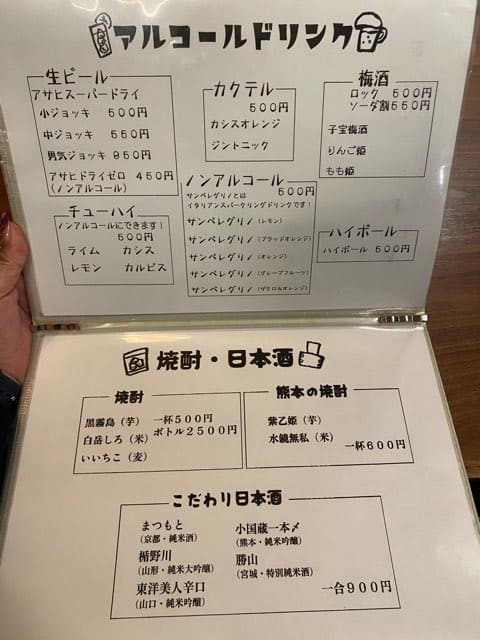 アルコールドリンク
生ビール
アサヒスーパードライ
小ジョッキ 500円
中ジョッキ 550円
男気ジョッキ 950円
アサヒドライゼロ 450円
(ノンアルコール)
カクテル
500円
カシスオレンジ
ジントニック
梅酒
ロック 500円
ソーダ割550円
子宝梅酒
りんご姫
もも姫
チューハイ
ノンアルコールにできます!
500円
ライム カシス
レモン カルピス
ノンアルコール
500円
サンペレグリノとは
イタリアンスパークリングドリンクです!
サンペレグリノ(レモン)
サンペレグリノ(ブラッドオレンジ)
サンペレグリノ(オレンジ)
サンペレグリノ(グレープフルーツ)
サンペレグリノ(ザクロ&オレンジ)
ハイボール
ハイボール 500円
焼酎・日本酒
焼酎
黒霧島(芋) 一杯500円
白岳しろ(米) ボトル2500円
いいちこ(麦)
熊本の焼酎
紫乙姫(芋)
水鏡無私(米)
一杯600円
こだわり日本酒
まつもと
(京都・純米酒)
楯野川
(山形・純米大吟醸)
東洋美人辛口
(山口・純米吟醸)
小国蔵一本〆
(熊本・純米吟醸)
勝山
(宮城・特別純米酒)
一合900円